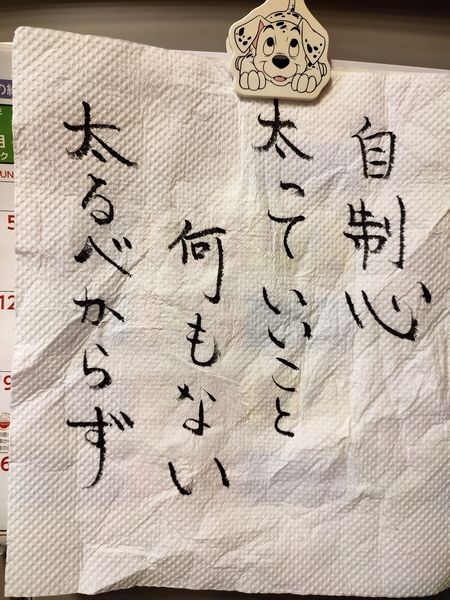 自制心
太っていいこと
何もない
太るべからず
の
月
ク
UN
5
12
9
6